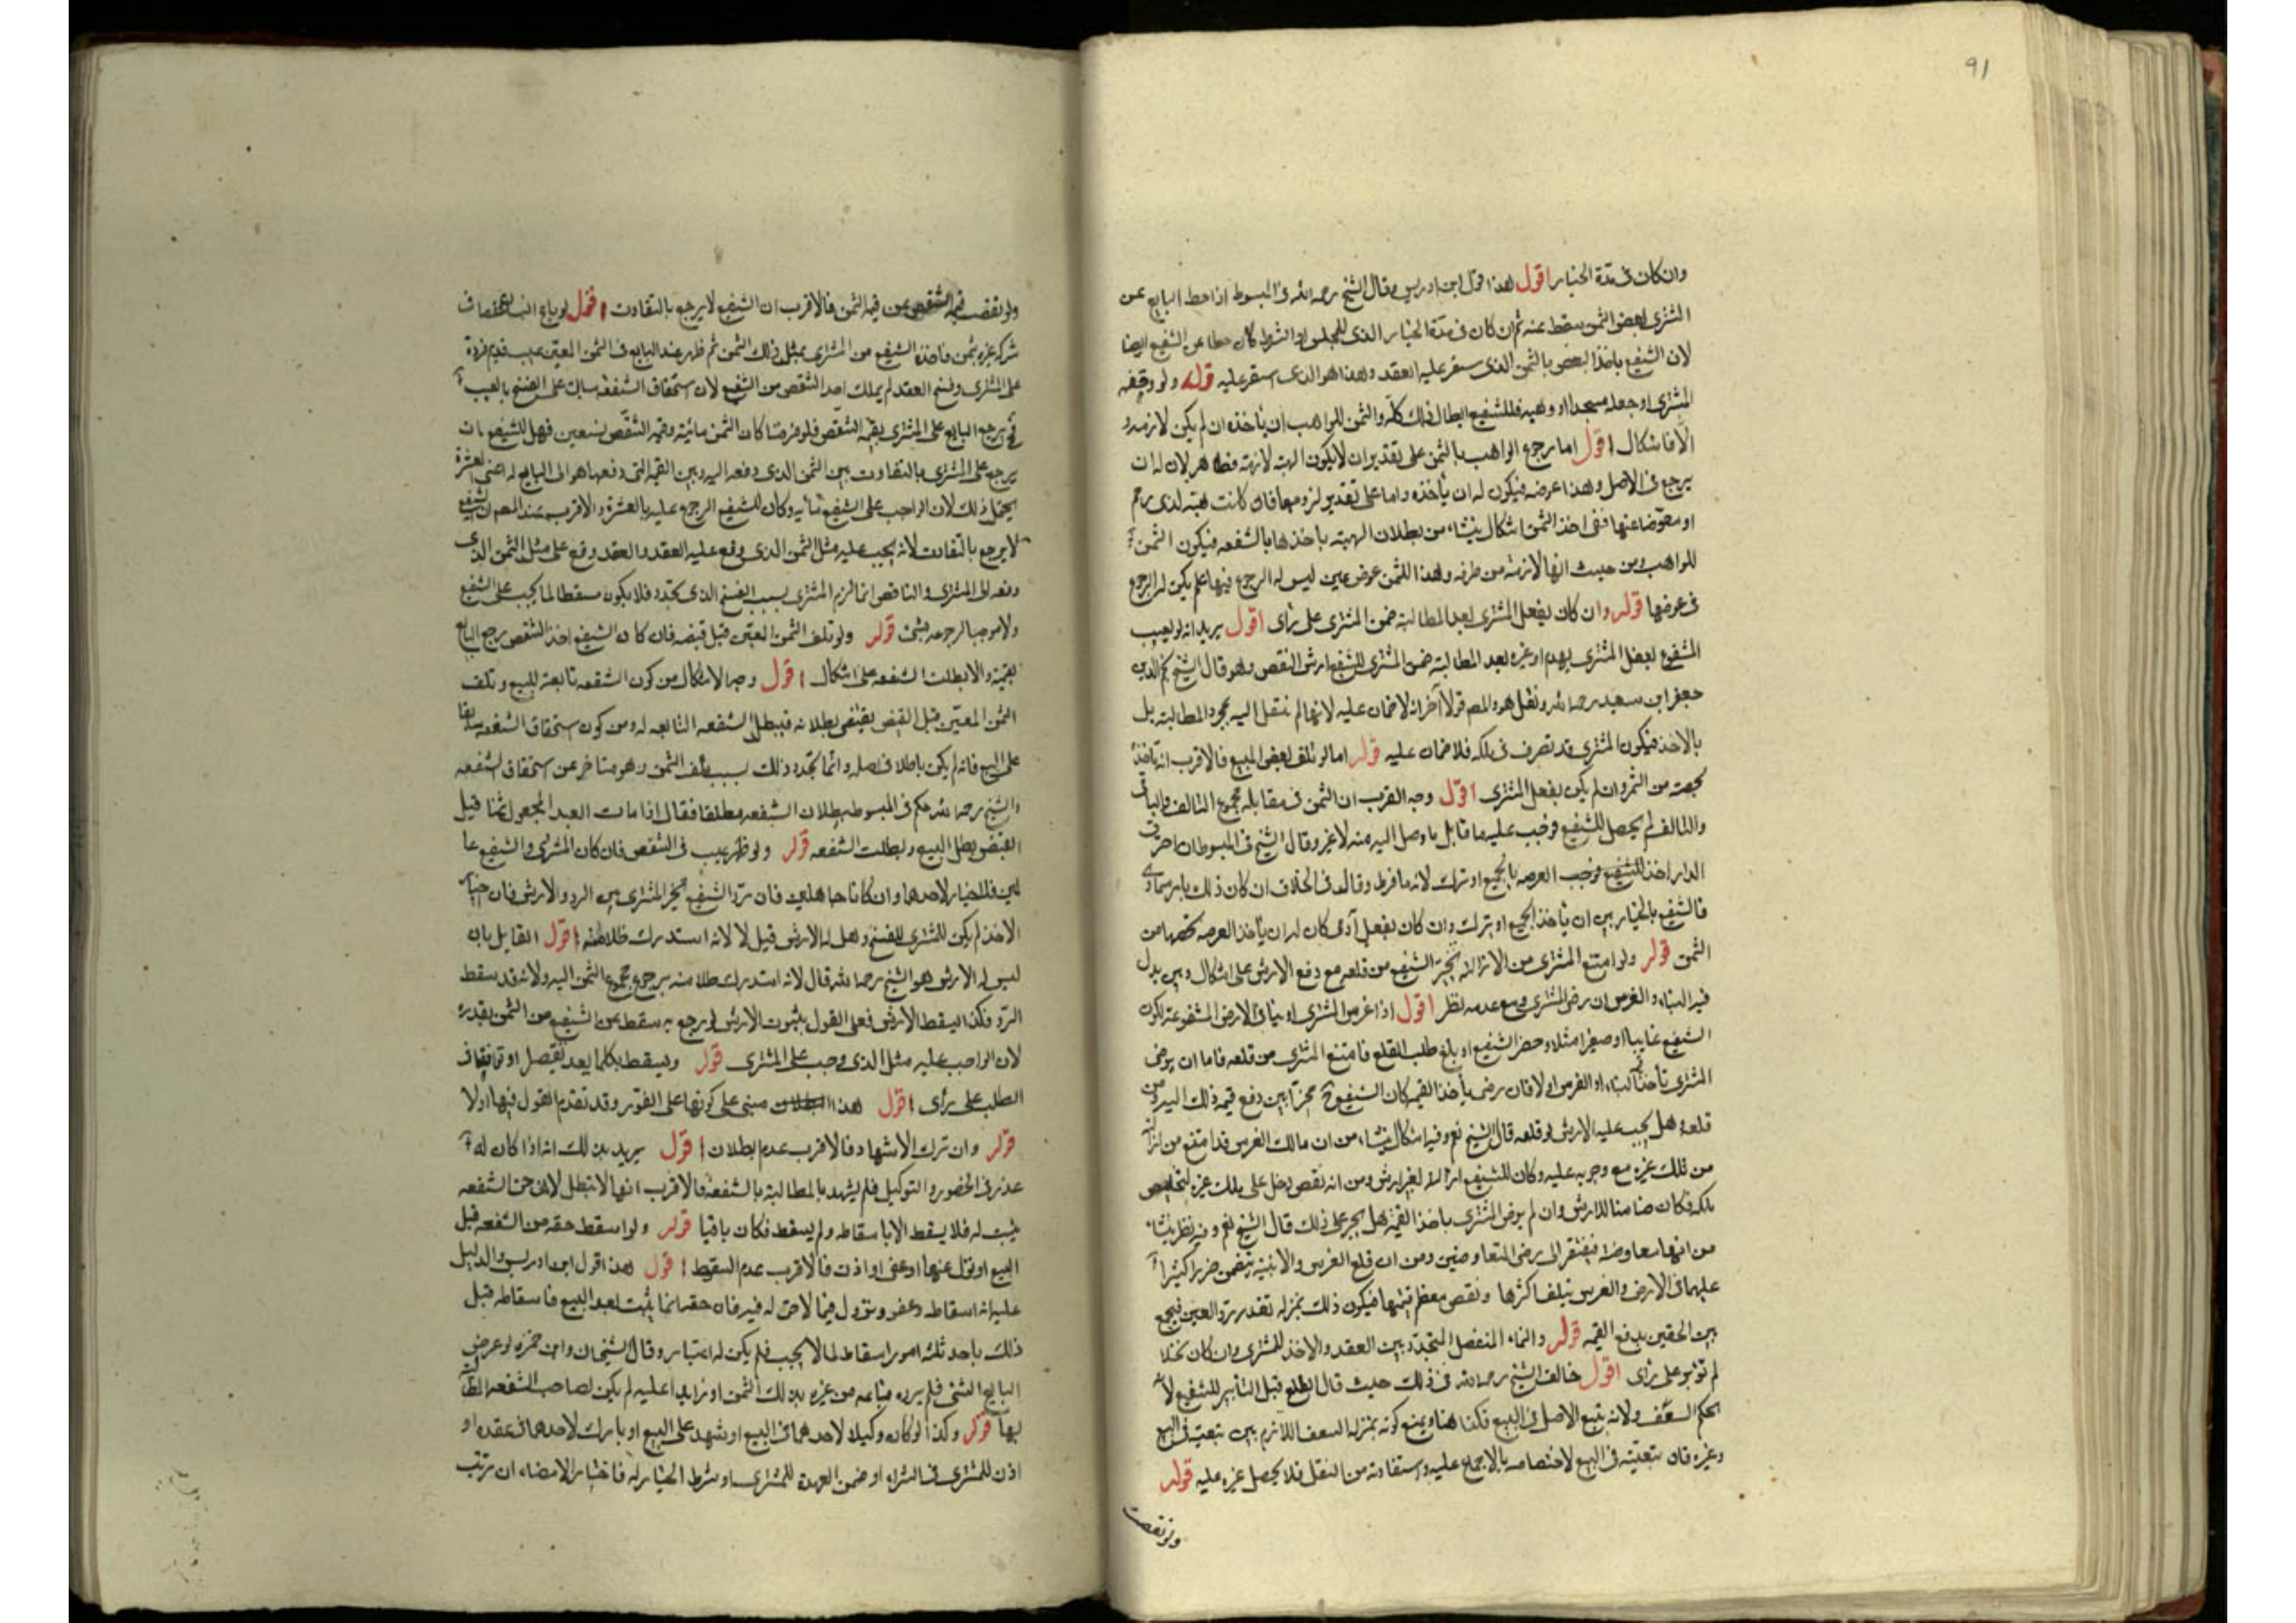 91
وان كان فى مدة الخيار اقول هذا قول ابن ادريس وقال الشيخ رحمه الله فى المبسوط اذا حط البايع عن
المشترى بعض الثمن سقط عنه ثم ان كان فى مدة الخيار الذى للمجلس او الشرط كان حطا عن الشفيع ايضا
لان الشفيع ياخذ البعض بالثمن الذى يستقر عليه العقد وهذا هو الذى استقر عليه قوله ولو وقفه
المشترى او جعله مسجدا او وهبه فللشفيع ابطال ذلك كله والثمن للواهب ان ياخذه ان لم يكن لازمه و
الا فاشكال اقول اما رجوع الواهب بالثمن على تقدير ان لا يكون الهبة لازمة فظاهر لان له ان
يرجع فى الاصل وهذا عوضه فيكون له ان ياخذه واما على تقدير لزومها فان كانت هبة لذى رحم
او معوضا عنها ففى اخذ الثمن اشكال ينشاء من بطلان الهبة باخذها بالشفعه فيكون الثمن
للواهب ومن حيث انها لازمة من طرفه وهذا الثمن عوض عين ليس له الرجوع فيها فلم يكن له الرجوع
فى عوضها قوله وان كان بفعل المشترى بعد المطالبة ضمن المشترى على راى اقول يريد انه لو تعيب
المشفوع بفعل المشترى بهدم او غيره بعد المطالبة ضمن المشترى للشفيع ارش النقص وهو قال الشيخ نجم الدين
جعفر ابن سعيد رحمه الله ونقل هو والمصه قولا آخر انه لا ضمان عليه لانها لم تنتقل اليه بمجرد المطالبة بل
بالاخذ فيكون المشترى قد تصرف فى ملكه فلا ضمان عليه قوله اما لو تلف بعض المبيع فالاقرب انه ياخذ
بحصته من الثمن وان لم يكن بفعل المشترى اقول وجه القرب ان الثمن فى مقابله مجموع التالف والباقى
والتالف لم يحصل للشفيع فوجب عليه ما قابل ما وصل اليه منه لا غير وقال الشيخ فى المبسوط ان احترقت
الدار اخذ للشفيع فوجب العرصه بالجميع او ترك لانه ما فرط وقال فى الخلاف ان كان ذلك بامر سماوى
فالشفيع بالخيار بين ان ياخذ الجميع او يترك وان كان بفعل آدمى كان له ان ياخذ العرصه بحصتها من
الثمن قوله ولو امتنع المشترى من الازالة تخير الشفيع من قلعه مع دفع الارش على اشكال وبين بذل
قيمه البناء والغرس ان رضى المشترى ومع عدمه نظر اقول اذا غرس المشترى او بنا فى الارض المشفوعه لكون
الشفيع غايبا او صغيرا مثلا وحضر الشفيع او بلغ طلب القلع فامتنع المشترى من قلعه فاما ان يرضى
المشترى ياخذ البناء او الغرس او لا فان رضى باخذ القيمه كان الشفيع ح مخيرا بين دفع قيمه ذلك اليه ومن
قلعه وهل يجب عليه الارش لو قلعه قال الشيخ نعم وفيه اشكال ينشاء من ان مالك الغرس قد امتنع من ازالته
من ملك غيره مع وجوبه عليه وكان للشفيع ازالته بغير ارش ومن انه نقص دخل على ملك غيره لتخليص
ملكه فكان ضامنا للارش وان لم يرض المشترى باخذ القيمة هل يجبر على ذلك قال الشيخ نعم وفيه نظر ينشاء
من انها معاوضة فيفتقر الى رضى المتعاوضين ومن ان قلع الغرس والابنيه يتضمن ضررا كثيرا
عليهما فى الارض والغرس بتلف اكثرها ونقص معظم قيمتها فيكون ذلك بمنزله تعذر رد العين فيجمع
بين الحقين بدفع القيمه قوله والنماء المنفصل المتجدد بين العقد والاخذ للمشترى وان كان نخلا
لم توبر على راى اقول خالف الشيخ رحمه الله فى ذلك حيث قال الطلع قبل التابير للشفيع لانه
بحكم السعف ولانه يتبع الاصل فى البيع فكذا هنا ويمنع كونه بمنزله السعف اللازم بين تبعيته فى البيع
وغيره فان تبعيته فى البيع لاختصاصه بالاجماع عليه واستفادته من النقل فلا يحمل غيره عليه قوله
ولو نقصت
ولو نقصت قيمة الشقص عن قيمة الثمن فالاقرب ان الشفيع لا يرجع بالتفاوت اقول لو باع انسان شقصا فى
شركه غيره بثمن فاخذه الشفيع من المشترى بمثل ذلك الثمن ثم ظهر عند البايع فى الثمن المعين عيب قديم فرده
على المشترى وفسخ العقد لم يملك اخذ الشقص من الشفيع لان استحقاق الشفعه سابق على الفسخ بالعيب
فح يرجع البايع على المشترى بقيمة الشقص فلو فرضنا كان الثمن مائة وقيمة الشقص تسعين فهل للشفيع ان
يرجع على المشترى بالتفاوت بين الثمن الذى دفعه اليه وبين القيمة التى دفعها هو الى البايع له اعنى العشرة
يحتمل ذلك لان الواجب على الشفيع مايه وكان للشفيع الرجوع عليه بالعشرة والاقرب عند المصه ان الشفيع
لا يرجع بالتفاوت لانه يجب عليه مثل الثمن الذى وقع عليه العقد والعقد وقع على مثل الثمن الذى
دفعه الى المشترى والناقص انما لزم المشترى بسبب الفسخ الذى تجدد فلا يكون مسقطا لما يجب على الشفيع
ولا موجبا لرجوعه بشئ قوله ولو تلف الثمن المعين قبل قبضه فان كان الشفيع اخذ الشقص رجع البايع
بقيمته والا بطلت الشفعه على اشكال اقول وجه الاشكال من كون الشفعه تابعة للبيع وتلف
الثمن المعين قبل القبض يقتضى بطلانه فيبطل الشفعه التابعه له ومن كون استحقاق الشفعه سابقا
على البيع فانه لم يكن باطلا فى اصله وانما تجدد ذلك بسبب تلف الثمن وهو متاخر عن استحقاق الشفعه
والشيخ رحمه الله حكم فى المبسوط ببطلان الشفعه مطلقا فقال اذا مات العبد المجعول ثمنا قبل
القبض بطل البيع وبطلت الشفعه قوله ولو ظهر عيب فى الشقص فان كان المشترى والشفيع عا
لمين فلا خيار لاحدهما وان كانا جاهلين فان رد الشفيع تخير المشترى بين الرد والارش فان اختار
الاخذ لم يكن للمشترى الفسخ وهل له الارش قيل لا لانه استدرك ظلامته اقول القايل بان
ليس له الارش هو الشيخ رحمه الله قال لانه استدرك ظلامته برجوع جميع الثمن اليه ولانه قد سقط
الرد فكذا يسقط الارش فعلى القول بثبوت الارش لو رجع به سقط عن الشفيع من الثمن بقدره
لان الواجب عليه مثل الذى وجب على المشترى قوله ويسقط بكلما يعد تقصيرا او توانيا فى
الطلب على راى اقول هذا مبنى على كونها على الفور وقد تقدم القول فيها اولا
قوله وان ترك الاشهاد فالاقرب عدم بطلان اقول يريد بذلك انه اذا كان له
عذر فى الحضور والتوكيل فلم يشهد بالمطالبة بالشفعة فالاقرب انها لا تبطل لان حق الشفعه
يثبت له فلا يسقط الا باسقاطه ولم يسقط فكان باقيا قوله ولو اسقط حقه من الشفعه قبل
البيع او نزل عنها او عفى او اذن فالاقرب عدم السقوط اقول هذا قول ابن ادريس والدليل
عليه انه اسقاط وعفو ونزول فيما لا حق له فيه فان حقه انما يثبت بعد البيع فاسقاطه قبل
ذلك باحد ثلثة امور اسقاط لما لا يجب فلم يكن له اعتبار وقال الشيخان وابن حمزه لو عرض
البايع الشئ فلم يرده فباعه من غيره بذلك الثمن او زايدا عليه لم يكن لصاحب الشفعه المطالبة
بها قوله وكذا لو كان وكيلا لاحدهما فى البيع او شهد على البيع او بارك لاحدهما فى عقده او
اذن للمشترى فى الشراء او ضمن العهدة للمشترى او شرط الخيار له فاختار الامضاء ان ترتب